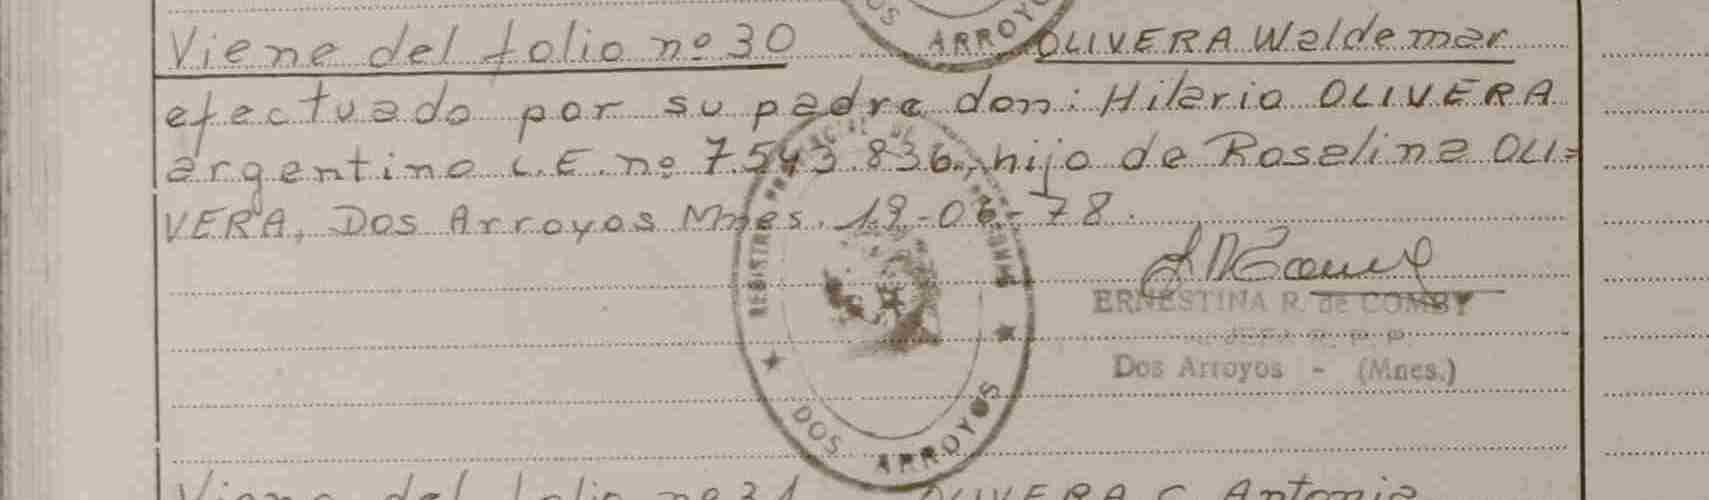 DOS ARROYOS
Viene del folio nº 30 OLIVERA Waldemar
efectuado por su padre don: Hilario OLIVERA
argentino L.E. nº 7.543.836, hijo de Roselina OLI=
VERA, Dos Arroyos Mnes. 19-06-78.
ERNESTINA R. de COMBY
Dos Arroyos - (Mnes.)
DOS ARROYOS
Viene del folio nº 31 OLIVERA C. Antonio